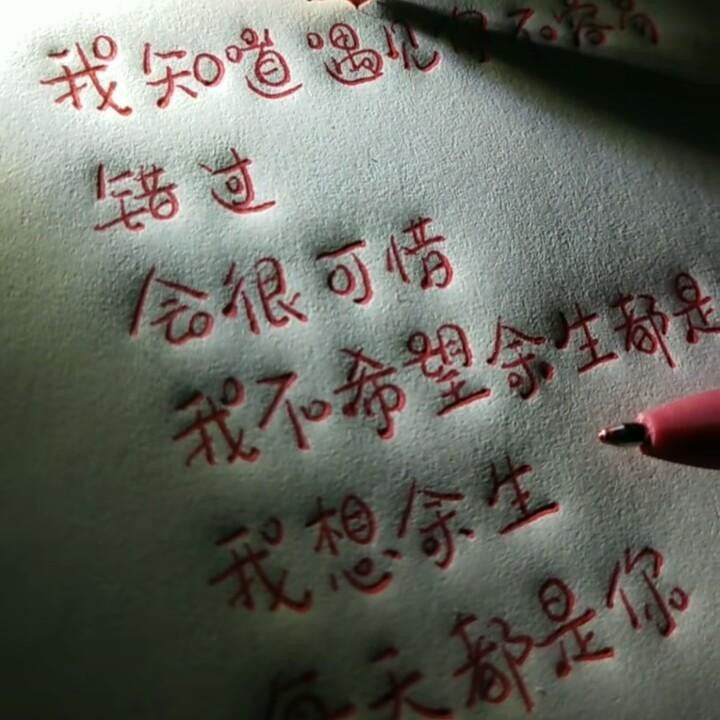 我知道遇见你不容易
错过
会很可惜
我不希望余生都是
我想余生
每天都是你